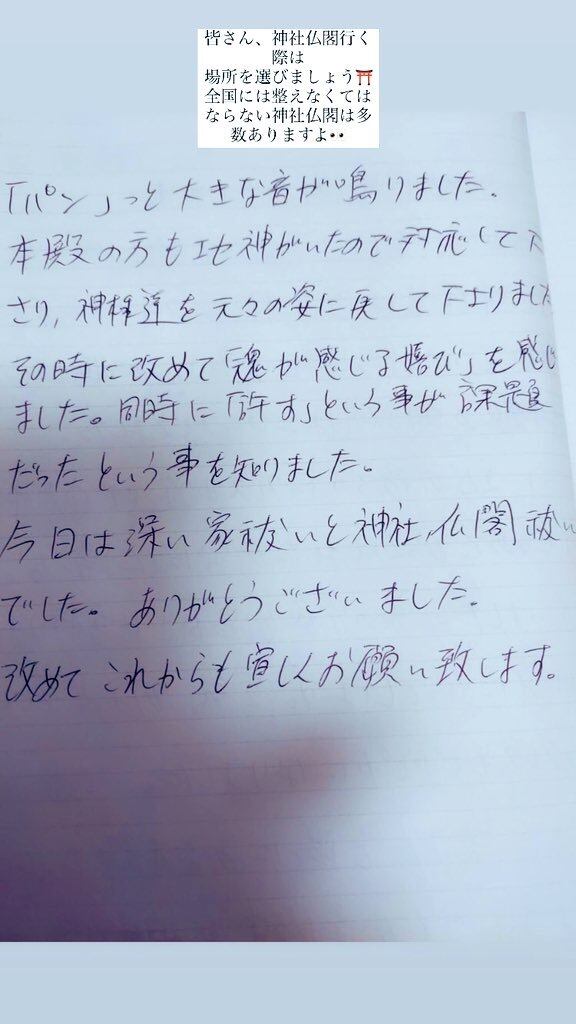 皆さん、神社仏閣行く
際は
場所を選びましょう⛩️
全国には整えなくては
ならない神社仏閣は多
数ありますよ👀
「パン」っと大きな音が鳴りました。
本殿の方も地神がいたので対応して下
さり、神様達を元々の姿に戻して下さりました
その時に改めて「魂が感じる嬉び」を感じ
ました。同時に「許す」という事が課題
だったという事を知りました。
今日は深い家祓いと神社、仏閣祓い
でした。ありがとうございました。
改めてこれからも宜しくお願い致します。